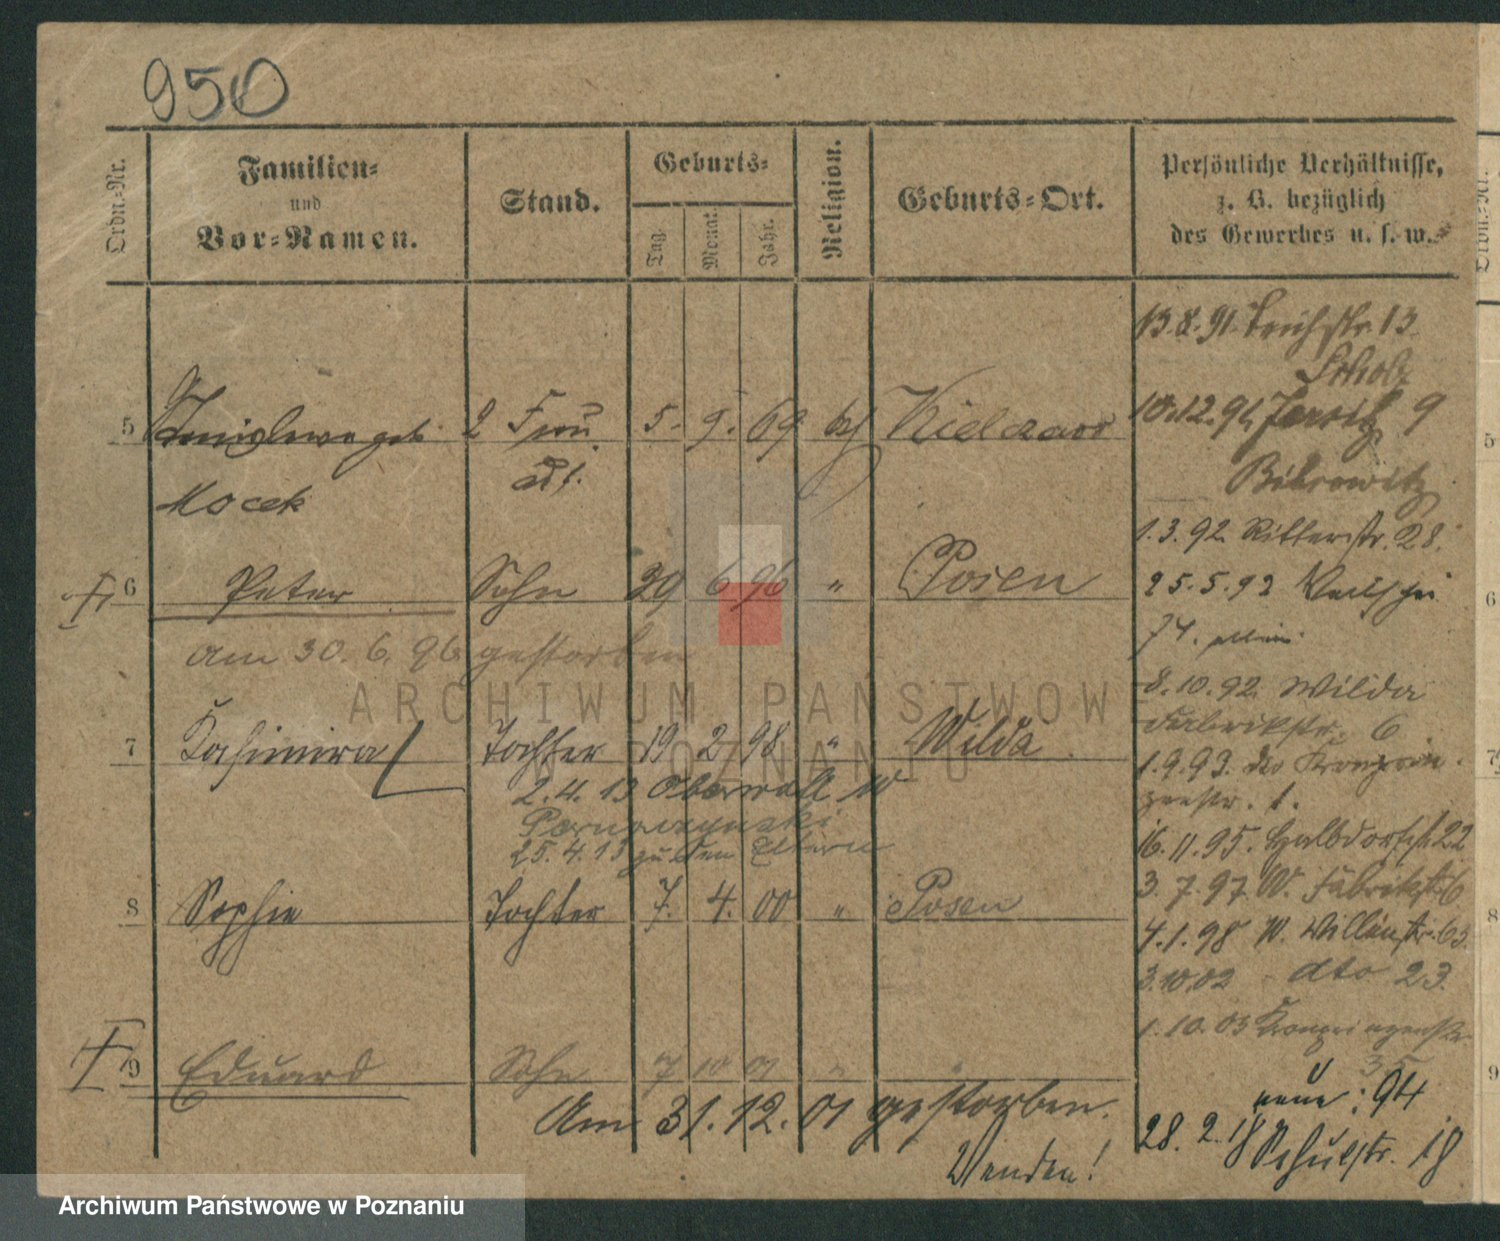 950
Ordn.-Nr.
Familien-
und
Vor-Namen.
Stand.
Geburts-
Tag.
Monat.
Jahr.
Religion.
Geburts-Ort.
Persönliche Verhältnisse,
z. B. bezüglich
des Gewerbes u. s. w.
13.8.91. 13
Scholz
5 geb. 2 Frau 5. 9. 69
10.12.91 Jersitz 9
Mocek
1.3.92 Ritterstr. 28.
6 Peter Sohn 29 6 96 " Posen
25.5.92
74.
am 30. 6. 96 gestorben
8.10.92 Wilda
Fabrikstr. 6
7 Kasimira Tochter 19 2 98 " Wilda
1.9.93. dto Kronprin-
zenstr. 1.
2.4.13 Oberwall
25.4.13 zu den Eltern
16.11.95. Halbdorfstr. 22
3.7.97 W. Fabrikstr. 6
8 Sophie Tochter 7. 4. 00 " Posen
4.1.98 W. 63
3.10.02 - dto 23.
1.10.03 Kronprinzenstr.
35
9 Eduard Sohn 7 10 01 " "
neue: 94
Am 31.12.01 gestorben.
28.2.18 Schulstr. 18
Wenden!
ARCHIWUM PAŃSTWOW
W POZNANIU
Archiwum Państwowe w Poznaniu